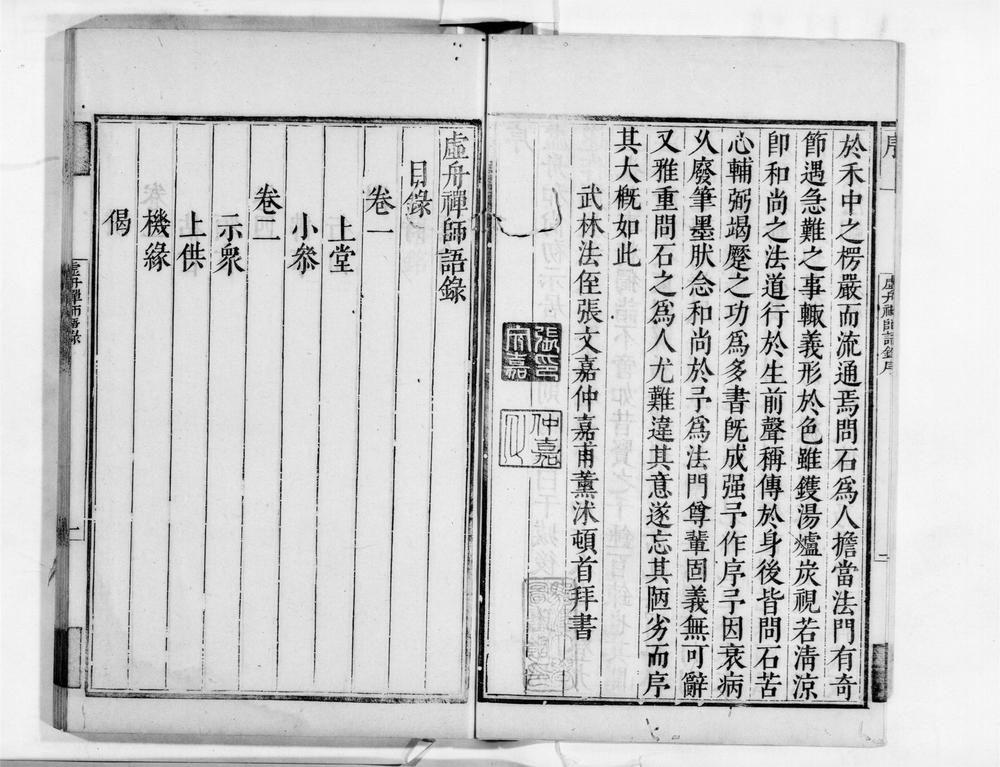 於禾中之楞嚴而流通焉問石爲人擔當法門有奇
節遇急難之事輙義形於色雖鑊湯爐炭視若清涼
卽和尚之法道行於生前聲稱傳於身後皆問石苦
心輔弼竭蹷之功爲多書旣成强予作序予因衰病
乆廢筆墨肰念和尚於予爲法門尊軰固義無可辭
又雅重問石之爲人尤難違其意遂忘其陋劣而序
其大槪如此
武林法侄張文嘉仲嘉甫薰沭頓首拜書
張文嘉印
仲嘉
虛舟禪師語錄序
二
虛舟禪師語錄
目錄
卷一
上堂
小叅
卷二
示衆
上供
機緣
偈
虛舟禪師語錄
二